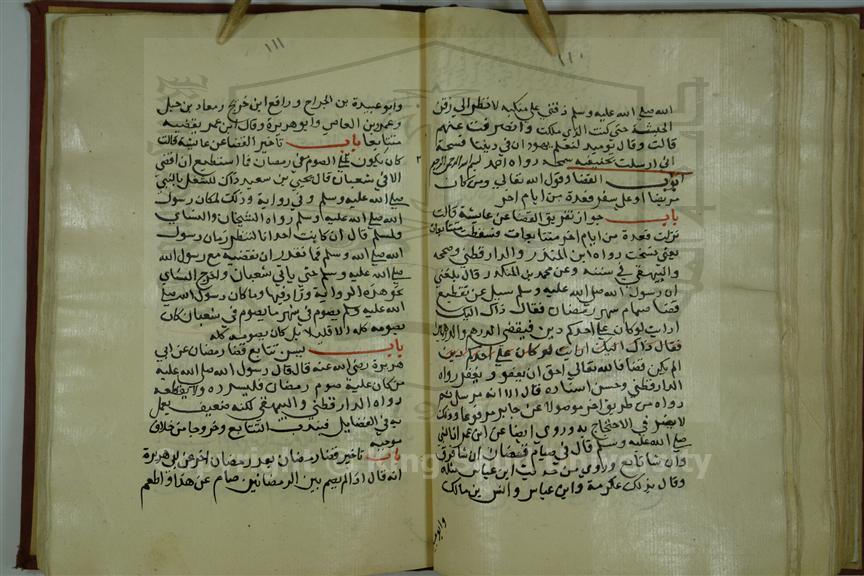 ١١٠
الله صلى الله عليه وسلم ذقني على منكبه لانظر الى زفن
الحبشة حتى كنت الذي مللت وانصرفت عنهم
قالت وقال يوميذ لتعلم يهود ان في ديننا فسحة
اني ارسلت بحنيفيه سمحه رواه احمد بسم الله الرحمن الرحيم
ابواب القضا وقول الله تعالى ومن كان
مريضا او على سفر فعدة من ايام اخر
باب جواز تفريق القضا عن عايشة قالت
نزلت فعدة من ايام اخر متتابعات فسقطت متتابعات
يعني نسخت رواه ابن المنذر والدارقطني وصححه
والبيهقي في سننه وعن محمد بن المنكدر قال بلغني
ان رسول الله صلى الله عليه وسلم سيل عن تقطيع
قضا صيام شهر رمضان فقال ذاك اليك
ارايت لو كان على احدكم دين فيقضي الدرهم والدرهمين
فقال ذاك اليك ارايت لو كان على احدكم دين
الم يكن قضا فالله تعالى احق ان يعفو ويغفر رواه
الدارقطني وحسن اسناده قال الا انه مرسل نعم
رواه من طريق اخر موصولا عن جابر مرفوعا وذلك
لا يضر في الاحتجاج به وروي ايضا عن ابن عمر ان النبي
صلى الله عليه وسلم قال في صيام رمضان ان شا فرق
وان شا تابع وروي من حديث ابن عباس مثله
وقال بذلك عكرمة وابن عباس وانس بن مالك
وابو
١١١
وابو عبيدة بن الجراح ورافع ابن خديج ومعاد بن جبل
وعمرو بن العاص وابو هريرة وقال ابن عمر يقضيه
متتابعا باب تاخير القضا عن عايشة قالت
كان يكون علي الصوم في رمضان فما استطيع ان اقضي
الا في شعبان قال يحيى بن سعيد ذاك للشغل بالنبي
صلى الله عليه وسلم وفي رواية وذلك لمكان رسول
الله صلى الله عليه وسلم رواه الشيخان والنساي
ولمسلم قال ان كانت احدانا لتفطر زمان رسول
الله صلى الله وسلم فما تقدر ان تقضيه مع رسول الله
صلى الله عليه وسلم حتى ياتي شعبان واخرج النساي
نحو هذه الرواية وزاد فيها وما كان رسول الله صلى
الله عليه وسلم يصوم في شهر ما يصوم في شعبان كان
يصومه كله الا قليلا بل كان يصومه كله
باب يسن تتابع قضا رمضان عن ابي
هريرة رضي الله عنه قال قال رسول الله صلى الله عليه
من كان عليه صوم رمضان فليسرده ولا يقطعه
رواه الدارقطني والبيهقي لكنه ضعيف يعمل
به في الفضايل فيندب التتابع وخروجا من خلاف
موجبه
باب تاخير قضا رمضان بعد رمضان اخر عن ابي هريرة
انه قال اذا لم يصم بين الرمضانين صام عن هذا واطعم